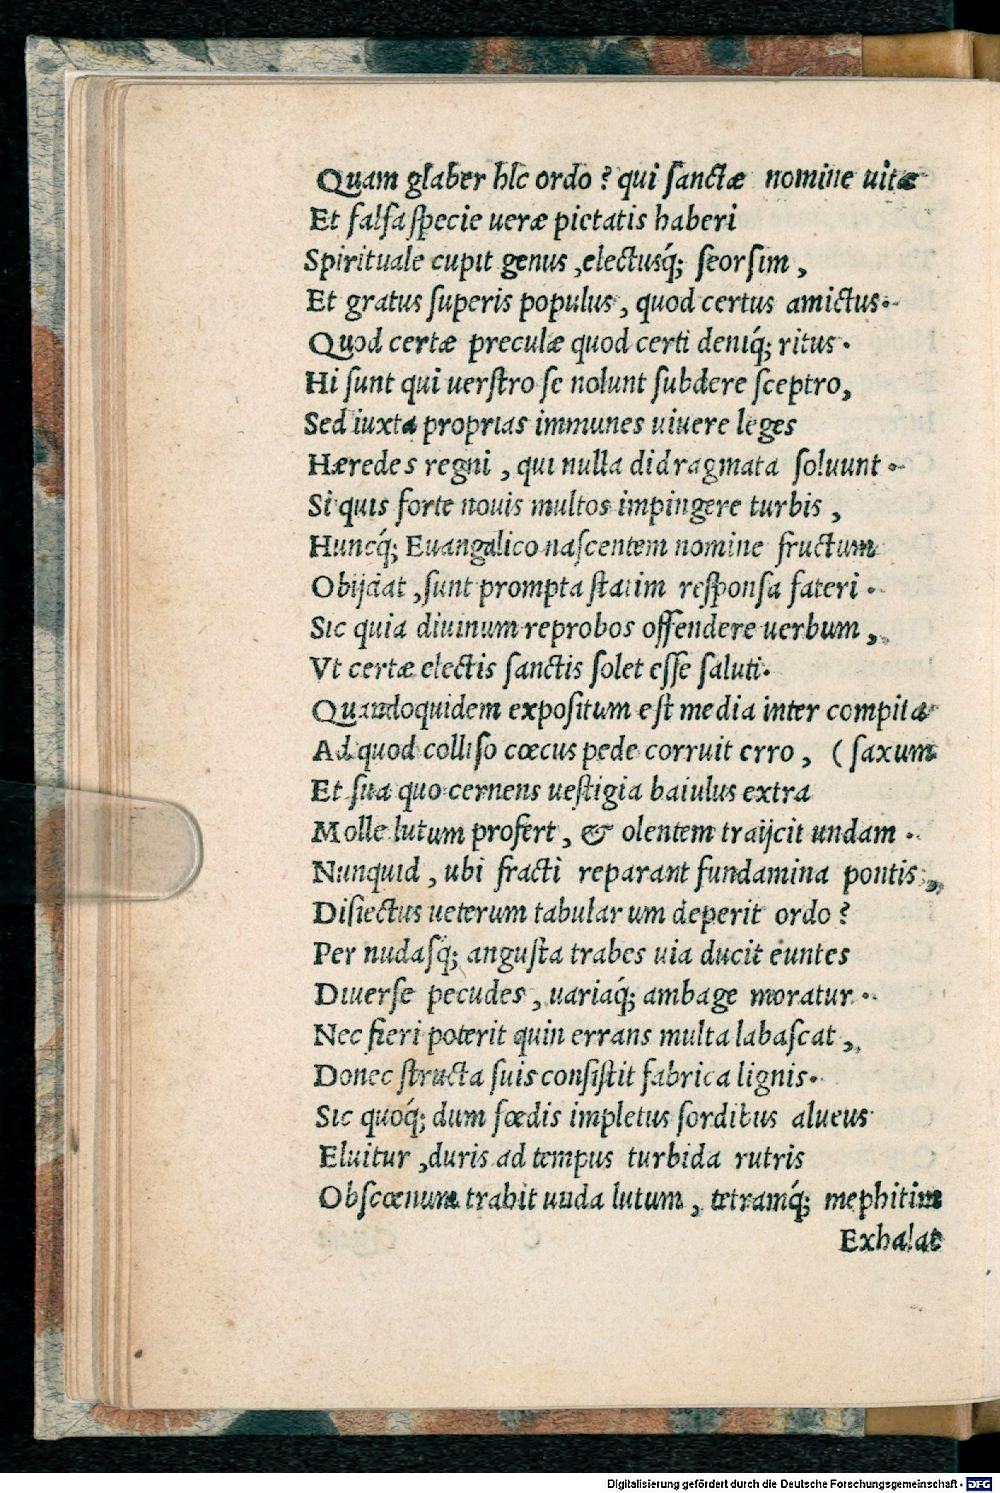 Quam glaber hic ordo? qui sanctæ nomine uitæ
Et falsa specie ueræ pietatis haberi
Spirituale cupit genus, electusq́; seorsim,
Et gratus superis populus, quod certus amictus.
Quod certæ preculæ quod certi deniq́; ritus.
Hi sunt qui uerstro se nolunt subdere sceptro,
Sed iuxta proprias immunes uiuere leges
Hæredes regni, qui nulla didragmata soluunt.
Si quis forte nouis multos impingere turbis,
Huncq́; Euangalico nascentem nomine fructum
Obijciat, sunt prompta statim responsa fateri.
Sic quia diuinum reprobos offendere uerbum,
Vt certæ electis sanctis solet esse saluti.
Quandoquidem expositum est media inter compita
Ad quod colliso cœcus pede corruit erro, (saxum
Et sua quo cernens uestigia baiulus extra
Molle lutum profert, & olentem traijcit undam.
Nunquid, ubi fracti reparant fundamina pontis,
Disiectus ueterum tabularum deperit ordo?
Per nudasq́; angusta trabes uia ducit euntes
Diuerse pecudes, uariaq́; ambage moratur.
Nec fieri poterit quin errans multa labascat,
Donec structa suis consistit fabrica lignis.
Sic quoq́; dum fœdis impletus sordibus alueus
Eluitur, duris ad tempus turbida rutris
Obscœnum trahit unda lutum, tetramq́; mephitim
Exhalat
Digitalisierung gefördert durch die Deutsche Forschungsgemeinschaft - DFG